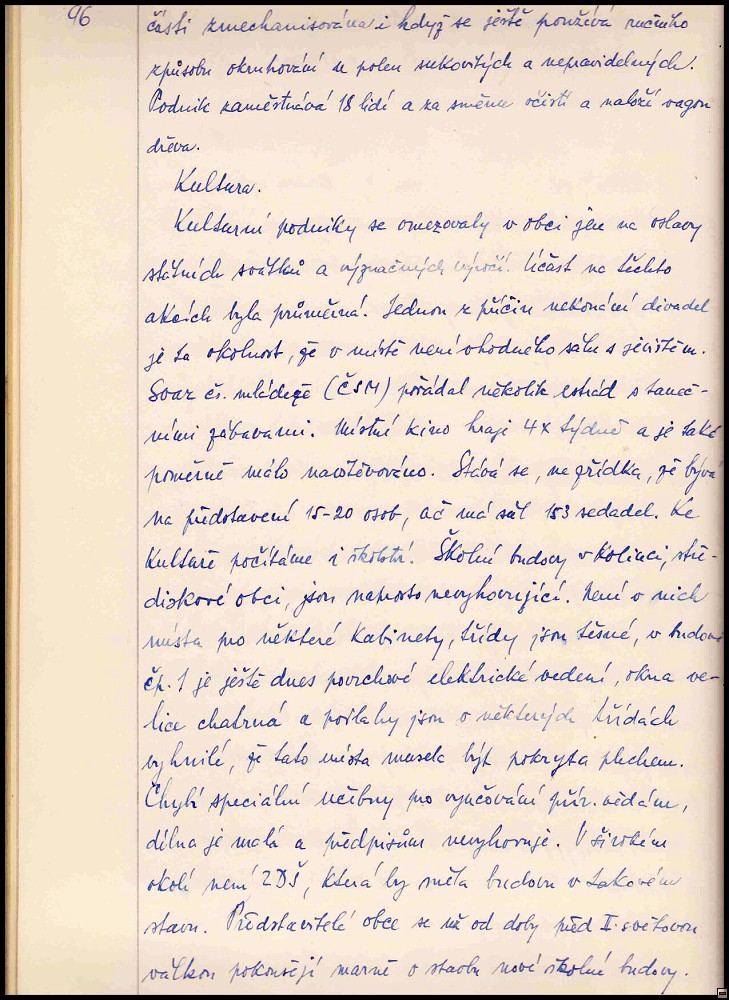 96
části zmechanisována i když se ještě používá ručního
způsobu okruhování u polen sukovitých a nepravidelných.
Podnik zaměstnává 18 lidí a za směnu očistí a naloží vagon
dřeva.
Kultura.
Kulturní podniky se omezovaly v obci jen na oslavy
státních svátků a význačných výročí. Účast na těchto
akcích byla průměrná. Jednou z příčin nekonání divadel
je ta okolnost, že v místě není vhodného sálu s jevištěm.
Svaz čs. mládeže (ČSM) pořádal několik estrád s taneč-
ními zábavami. Místní kino hraje 4x týdně a je také
poměrně málo navštěvováno. Stává se, ne zřídka, že bývá
na představení 15-20 osob, ač má sál 153 sedadel. Ke
kultuře počítáme i školství. Školní budovy v Kolinci, stře-
diskové obci, jsou naprosto nevyhovující. Není v nich
místa pro některé kabinety, třídy jsou těsné, v budově
čp. 1 je ještě dnes povrchové elektrické vedení, okna ve-
lice chatrná a podlahy jsou v některých třídách
vyhnilé, že tato místa musela být pokryta plechem.
Chybí speciální učebny pro vyučování přír. vědám,
dílna je malá a předpisům nevyhovuje. V širokém
okolí není ZDŠ, která by měla budovu v takovém
stavu. Představitelé obce se už od doby před II. světovou
válkou pokoušejí marně o stavbu nové školní budovy.